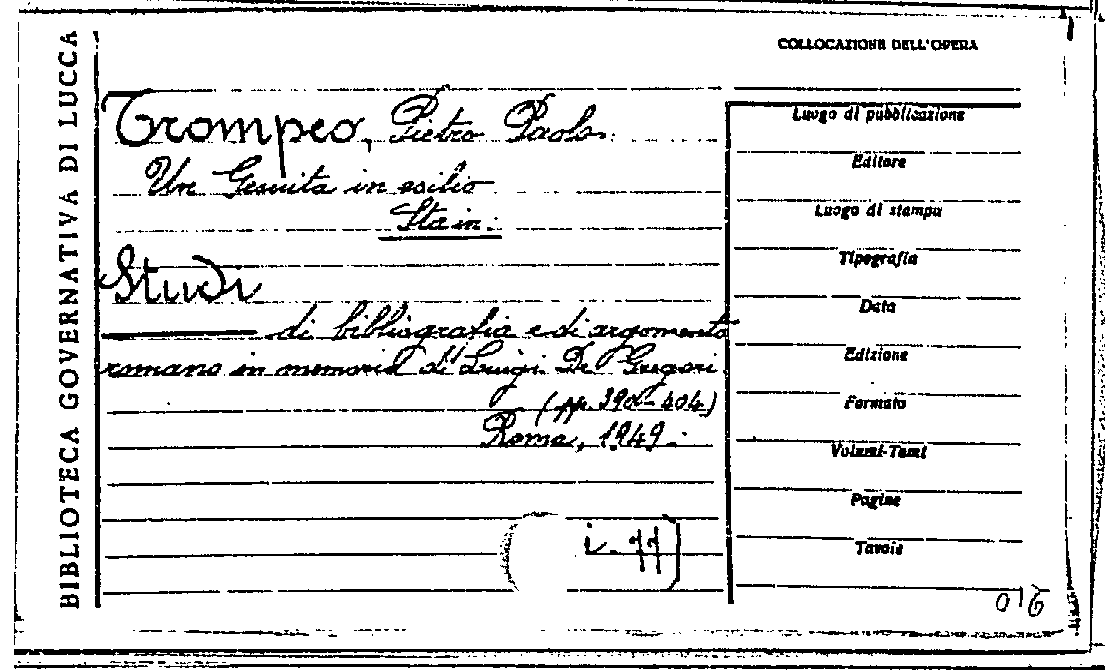 BIBLIOTECA GOVERNATIVA DI LUCCA
COLLOCAZIONE DELL'OPERA
Trompeo, Pietro Paolo.
Un Gesuita in esilio
Sta in:
Studi
di bibliografia e di argomento
romano in memoria di Luigi De Gregori.
(pp. 390-404)
Roma, 1949.
Luogo di pubblicazione
Editore
Luogo di stampa
Tipografia
Data
Edizione
Formato
Volumi-Tomi
Pagine
Tavole